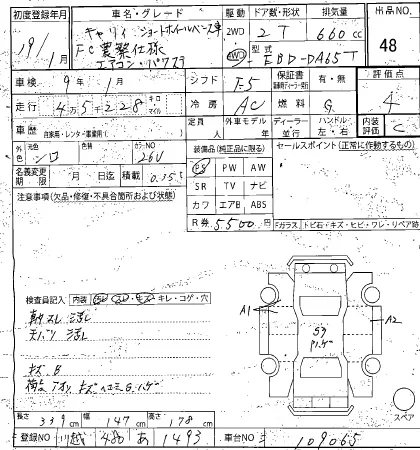 初度登録年月 車名・グレード 駆動 ドア数・形状 排気量 出品NO.
19/1 キャリィ ショートホイールベース車 2WD 2T 660cc 48
FC農繁仕様 4WD 型式 EBD-DA65T
エアコン・パワステ
車検 9年1月 シフト F5 保証書 有・無 評価点
走行 45228 キロ マイル 冷房 AC 燃料 G 4
車歴 自家用・レンタ・事業用 定員 人 外車モデル 年 ディーラー 並行 ハンドル 左・右 内装評価 C
外色 シロ 色替 カラーNO 26U 装備品(純正品に限る) セールスポイント(正常に作動するもの)
名義変更期限 月 日迄 積載 0.35t PS PW AW
注意事項(欠品・修復・不具合箇所および状態) SR TV ナビ
カワ エアB ABS
R券 5,500円 Fガラス トビ石・キズ・ヒビ・ワレ・リペア跡
検査員記入 内装 キレ・コゲ・穴
A1 A2
キズ B
長さ 339cm 幅 147cm 高さ 178cm スペア
登録NO 川越 480 あ 1493 車台NO 109065